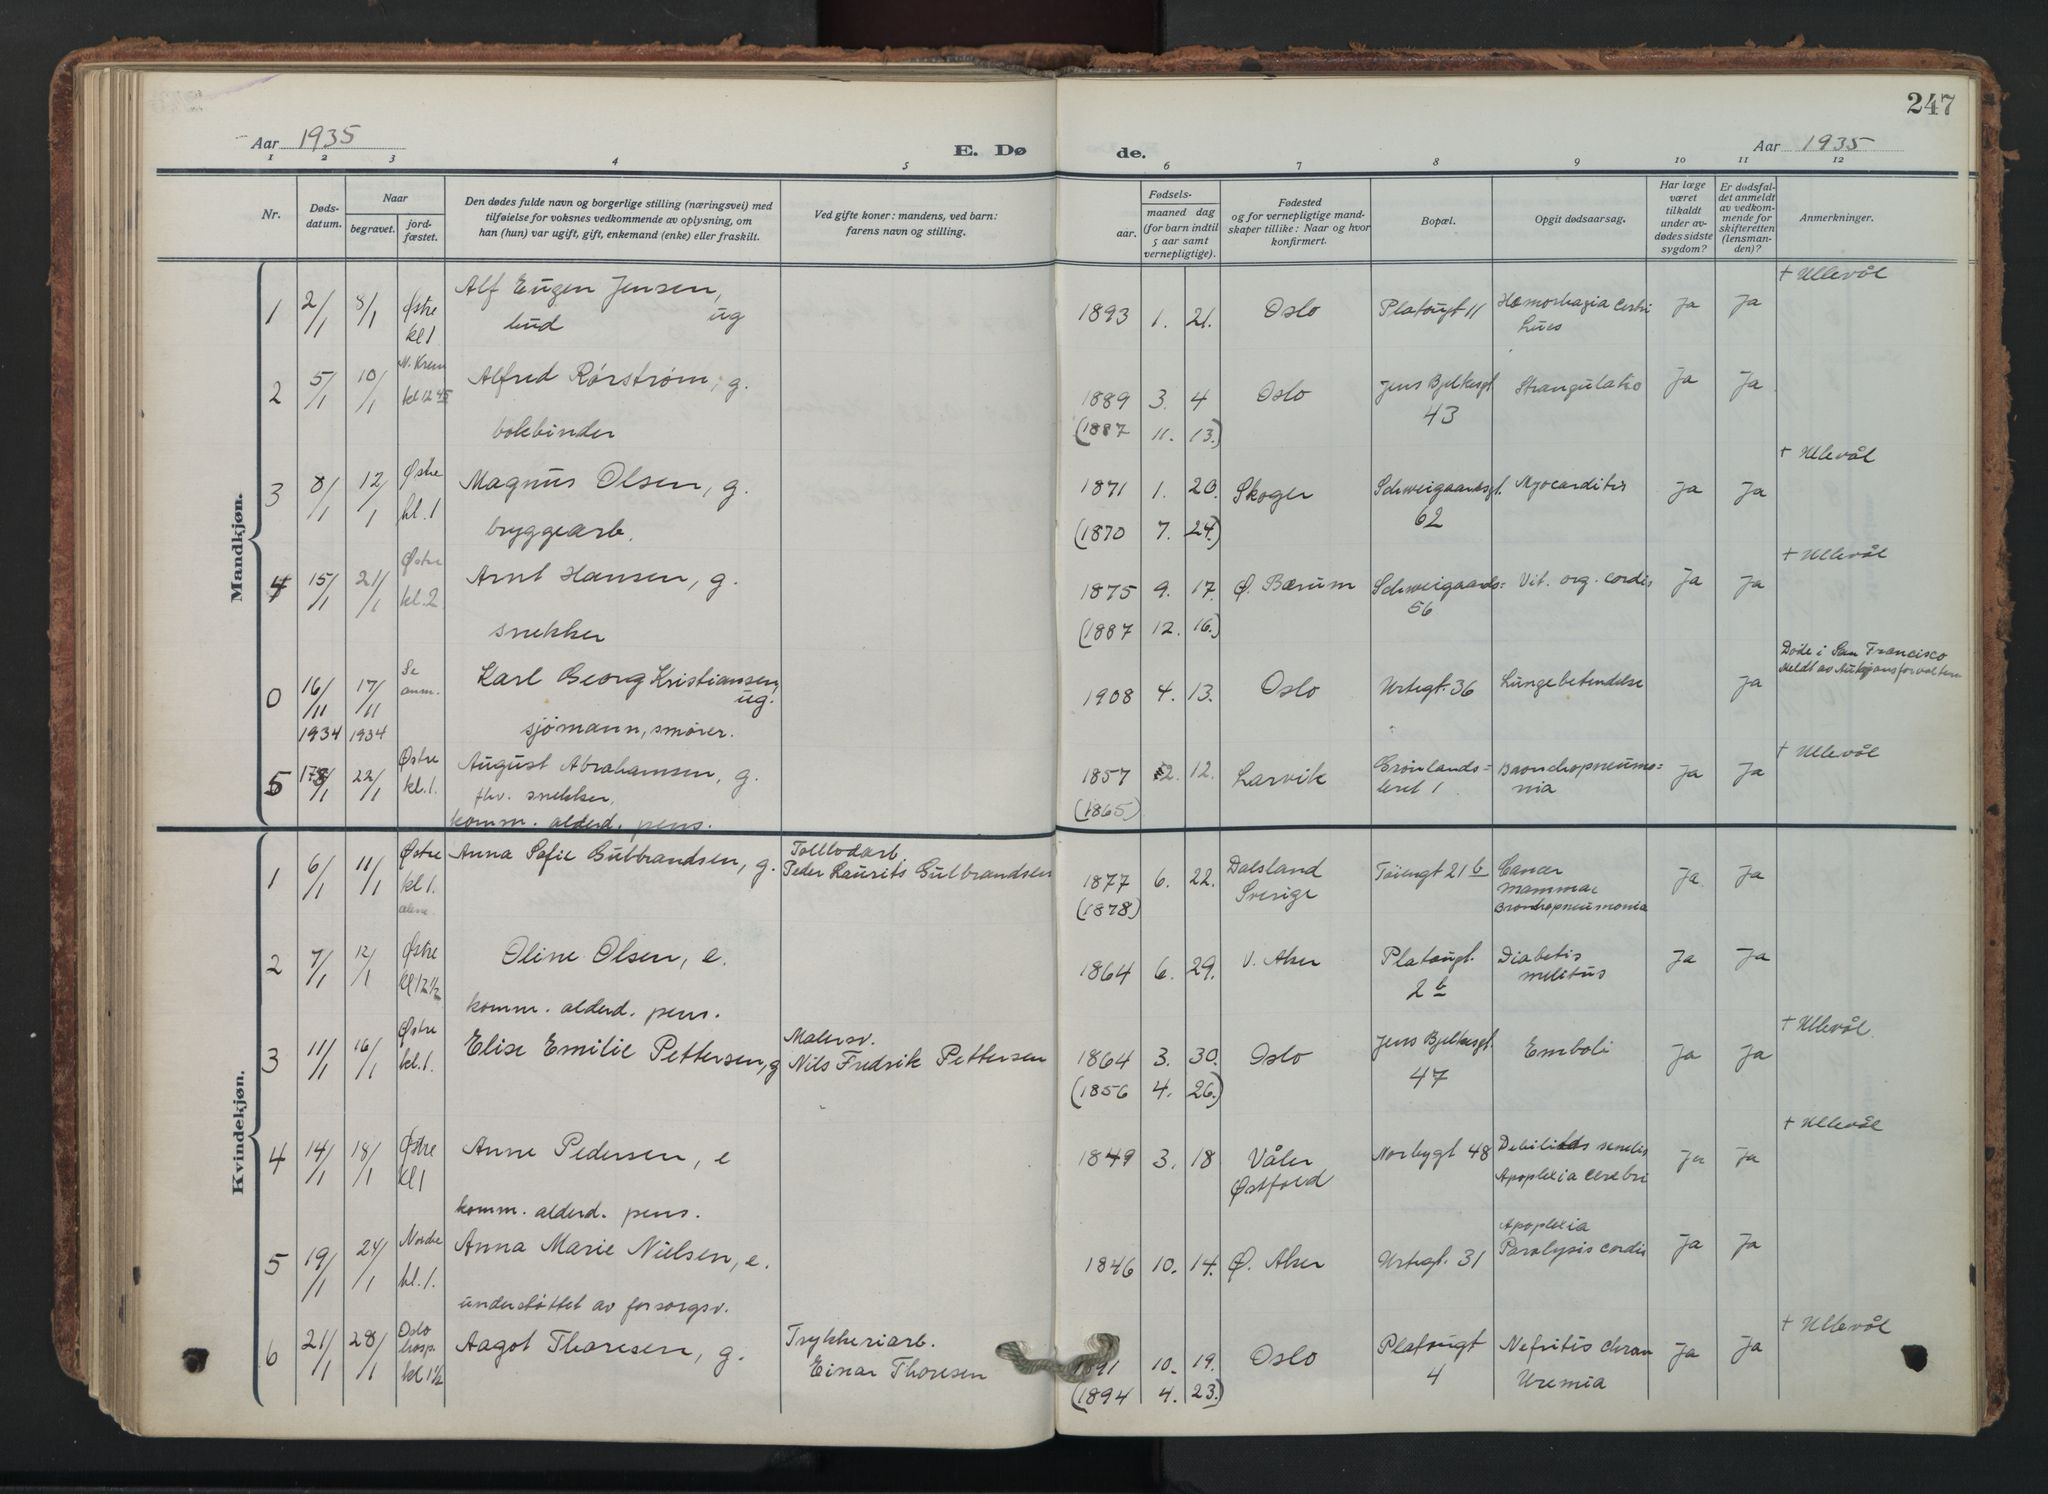 247
Aar 1935
E. Dø
de.
Aar 1935
1 2 3 4 5 6 7 8 9 10 11 12
Nr.
Døds-
datum.
Naar
begravet.
jord-
fæstet.
Den dødes fulde navn og borgerlige stilling (næringsvei) med
tilføielse for voksnes vedkommende av oplysning, om
han (hun) var ugift, gift, enkemand (enke) eller fraskilt.
Ved gifte koner: mandens, ved barn:
farens navn og stilling.
Fødsels-
aar.
maaned dag
(for barn indtil
5 aar samt
vernepligtige).
Fødested
og for vernepligtige mand-
skaper tillike: Naar og hvor
konfirmert.
Bopæl.
Opgit dødsaarsag.
Har læge
været
tilkaldt
under av-
dødes sidste
sygdom?
Er dødsfal-
det anmeldt
av vedkom-
mende for
skifteretten
(lensman-
den)?
Anmerkninger.
Mandkjøn.
1 2/1 8/1 Østre kl 1 Alf Eugen Jensen, ug
bud
1893 1. 21. Oslo Platougt 11 Hæmorhagia Cerbri
Lues
Ja Ja + Ullevål
2 5/1 10/1 N. Krem kl 12 45 Alfred Rørstrøm, g.
bokbinder
1889 3. 4 Oslo Jens Bjelkesgt
43
Strangulatio Ja Ja
(1887 11. 13.)
3 8/1 12/1 Østre kl. 1 Magnus Olsen, g.
bryggearb.
1871 1. 20. Skoger Schweigaardsgt.
62
Myocarditis Ja Ja + Ullevål
(1870 7. 24.)
4 15/1 21/1 Østre kl. 2 Arnt Hansen, g.
snekker
1875 9. 17. Ø. Bærum Schweigaards=
56
Vit. org. cordis Ja Ja + Ullevål
(1887 12. 16.)
0 16/11 1934 17/11 1934 Se anm. Karl Georg Kristianssen, ug.
sjømann, smører.
1908 4. 13. Oslo Urtegt. 36 Lungebetendelse Ja Døde i San Francisco
Meldt av
5 22/1 Østre kl. 1. August Abrahamsen, g.
fhv. snekker,
komm. alderd. pens.
1857 2. 12. Larvik Grønlands=
leret 1
Bronchopneumo=
nia
Ja Ja + Ullevål
(1865)
Kvindekjøn.
1 6/1 11/1 Østre kl 1. Anna Sofie Gulbrandsen, g. Tollbodarb
Peder Laurits Gulbrandsen
1877 6. 22. Dalsland
Sverige
Tøiengt 21 b Cancer
mammae
Bronchopneumonia
Ja Ja
(1878)
2 7/1 12/1 Østre kl 12 1/2 Oline Olsen, e.
komm. alderd. pens.
1864 6. 29. V. Aker Platougt.
2 b
Diabetis
melitus
Ja Ja
3 11/1 16/1 Østre kl. 1. Elise Emilie Pettersen, g Malersv.
Nils Fredrik Pettersen
1864 3. 30. Oslo Jens Bjelkesgt.
47
Emboli Ja Ja + Ullevål
(1856 4. 26.)
4 14/1 18/1 Østre kl 1 Anne Pedersen, e
komm. alderd. pens.
1849 3. 18 Våler
Østfold
Norbygt 48 Debilitas senilis
Apoplexia cerebri
Ja Ja + Ullevål
5 19/1 24/1 Nordre kl. 1. Anna Marie Nielsen, e.
understøttet av forsorgsv.
1846 10. 14. Ø. Aker Urtegt. 31 Apoplexia
Paralysis cordis
Ja Ja
6 21/1 28/1 Oslo hosp. kl 1 1/2 Aagot Thoresen, g. Trykkeriarb.
Einar Thoresen
1891 10. 19. Oslo Platougt
4
Nefritis chron
Uremia
Ja Ja + Ullevål
(1894 4. 23.)